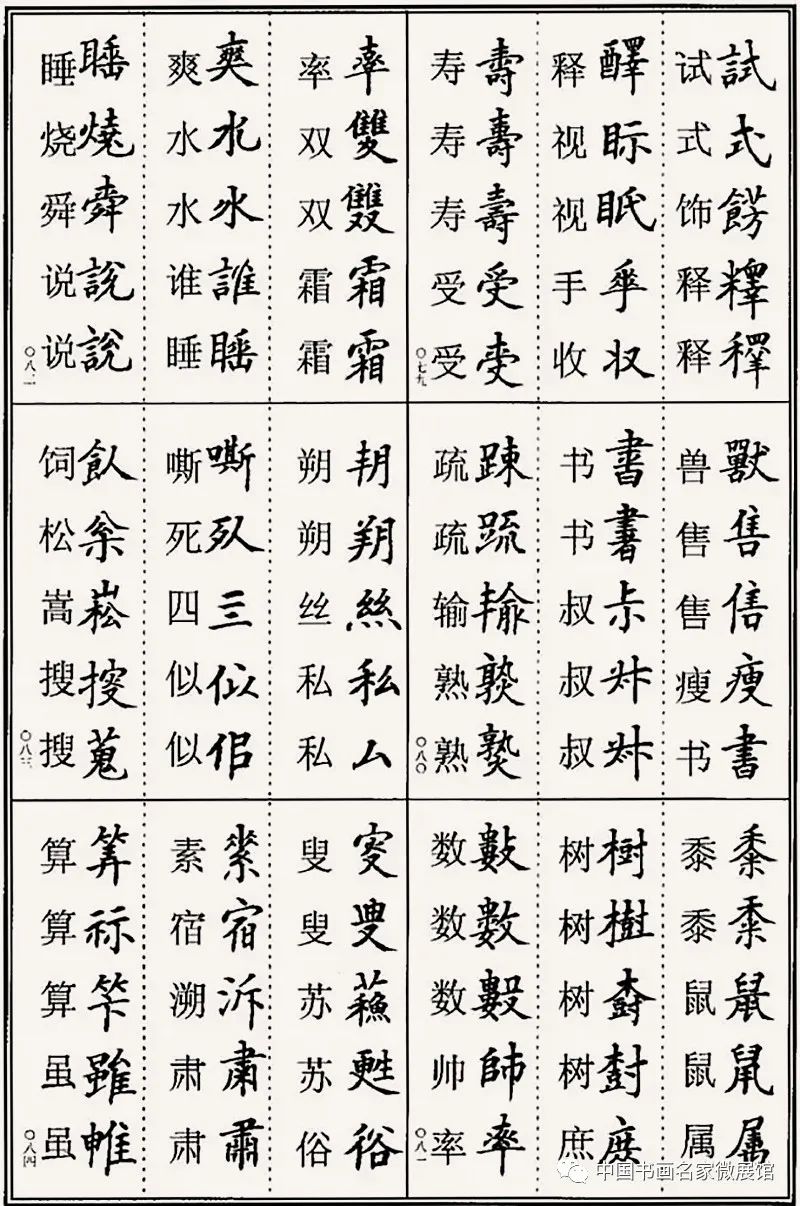 试試
式式
饰
释釋
释
释醳
视眎
视眡
手
收収
寿壽
寿壽
寿壽
受受
受
〇七九
率率
双雙
双
霜霜
霜霜
爽爽
水水
水水
谁誰
睡睡
睡睡
烧燒
舜舜
说說
说説
〇八二
兽獸
售售
售
瘦瘦
书書
书書
书
叔尗
叔
叔
疏踈
疏䟽
输輸
熟
熟
〇八〇
朔
朔朔
丝絲
私私
私厶
嘶嘶
死
四亖
似佀
似
饲飤
松枀
嵩
搜
搜蒐
〇八三
黍黍
黍
鼠鼠
鼠
属属
树樹
树
树
树尌
庶庶
数數
数數
数
帅帥
率率
〇八一
叟
叟叟
苏蘓
苏甦
俗俗
素
宿宿
溯泝
肃肅
肃
算筭
算祘
算
虽雖
虽
〇八四
中国书画名家微展馆